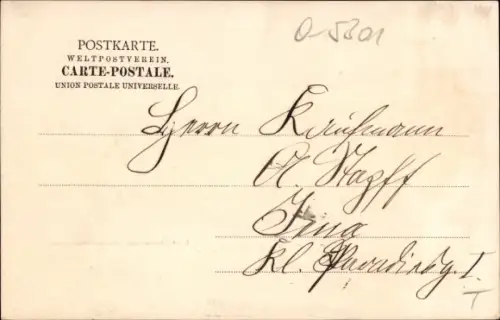 O-5301
POSTKARTE.
WELTPOSTVEREIN.
CARTE-POSTALE.
UNION POSTALE UNIVERSELLE.
Herrn Kaufmann
A. Stapff
Jena
Kl. Paradiesg. I